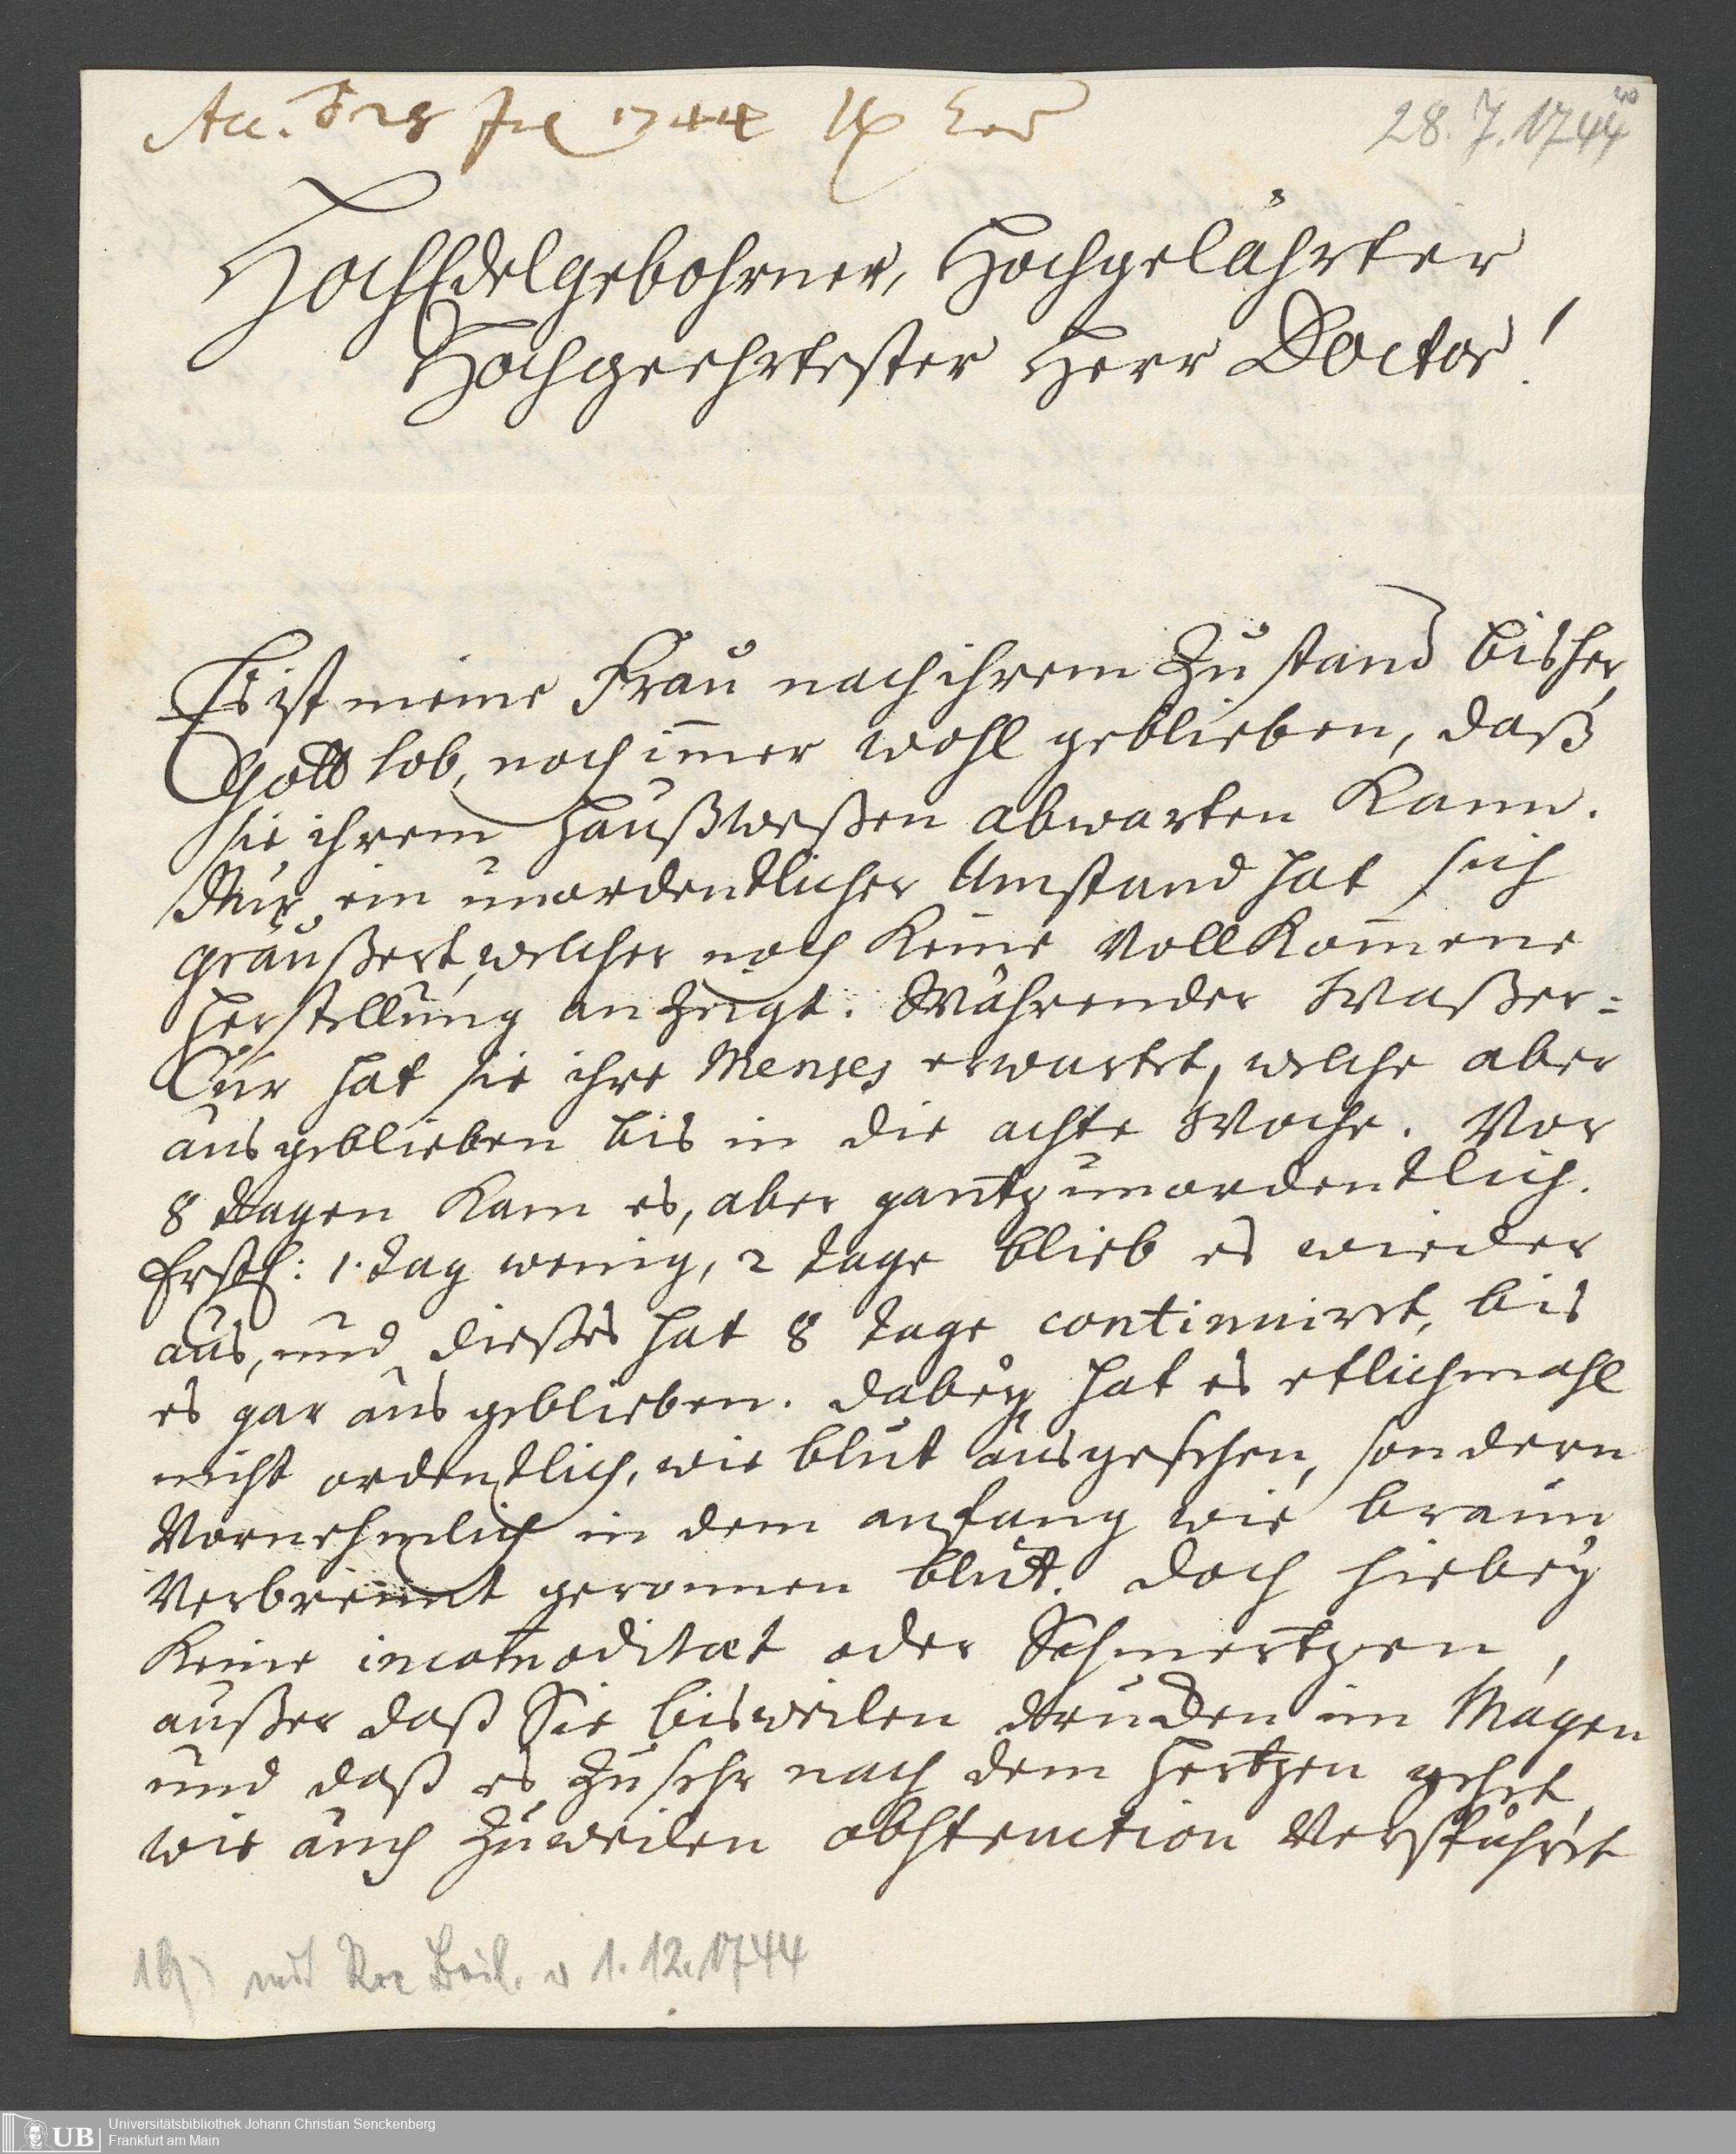 Acc. d 28 Jul 1744
28. 7. 1744
HochEdelgebohrner, Hochgelährter
Hochgeehrtester Herr Doctor!
Es ist meine Frau nach ihrem Zustand bisher,
Gott lob, noch im̅er wohl geblieben, daß
sie ihrem Haußweßen abwarten kann.
Nur ein unordentlicher Umstand hat sich
geäußert, welcher noch keine vollkom̅ene
Herstellung anzeigt. Währender Waßer=
Cur hat sie ihre Menses erwartet, welche aber
ausgeblieben bis in die achte Woche. Vor
8 Tagen kam es, aber gantz unordentlich.
Erstl: 1. Tag wenig, 2 Tage blieb es wieder
aus, und dießes hat 8 Tage continuiret, bis
es gar ausgeblieben. Dabey hat es etlichmahl
nicht ordentlich, wie blut ausgesehen, sondern
Vornehmlich in dem anfang wie braun
Verbrennt geronnen blut. Doch hiebey
keine incom̅oditæt oder Schmertzen,
außer daß Sie bisweilen Drucken im Magen
und daß es zu sehr nach dem Hertzen gehet
wie auch zuweilen obstruction Verspühret
mit Rez Beil. v 1. 12. 1744
UB
Universitätsbibliothek Johann Christian Senckenberg
Frankfurt am Main